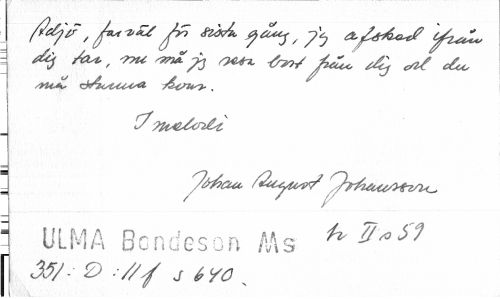 Adjö, farväl för sista gång, jg afsked ifrån
dig tar, nu må jg resa bort från dig och du
må stanna kvar.
I melodi
Johan August Johansson
ULMA Bondeson Ms h II s 59
351: D: 11 f s 640.